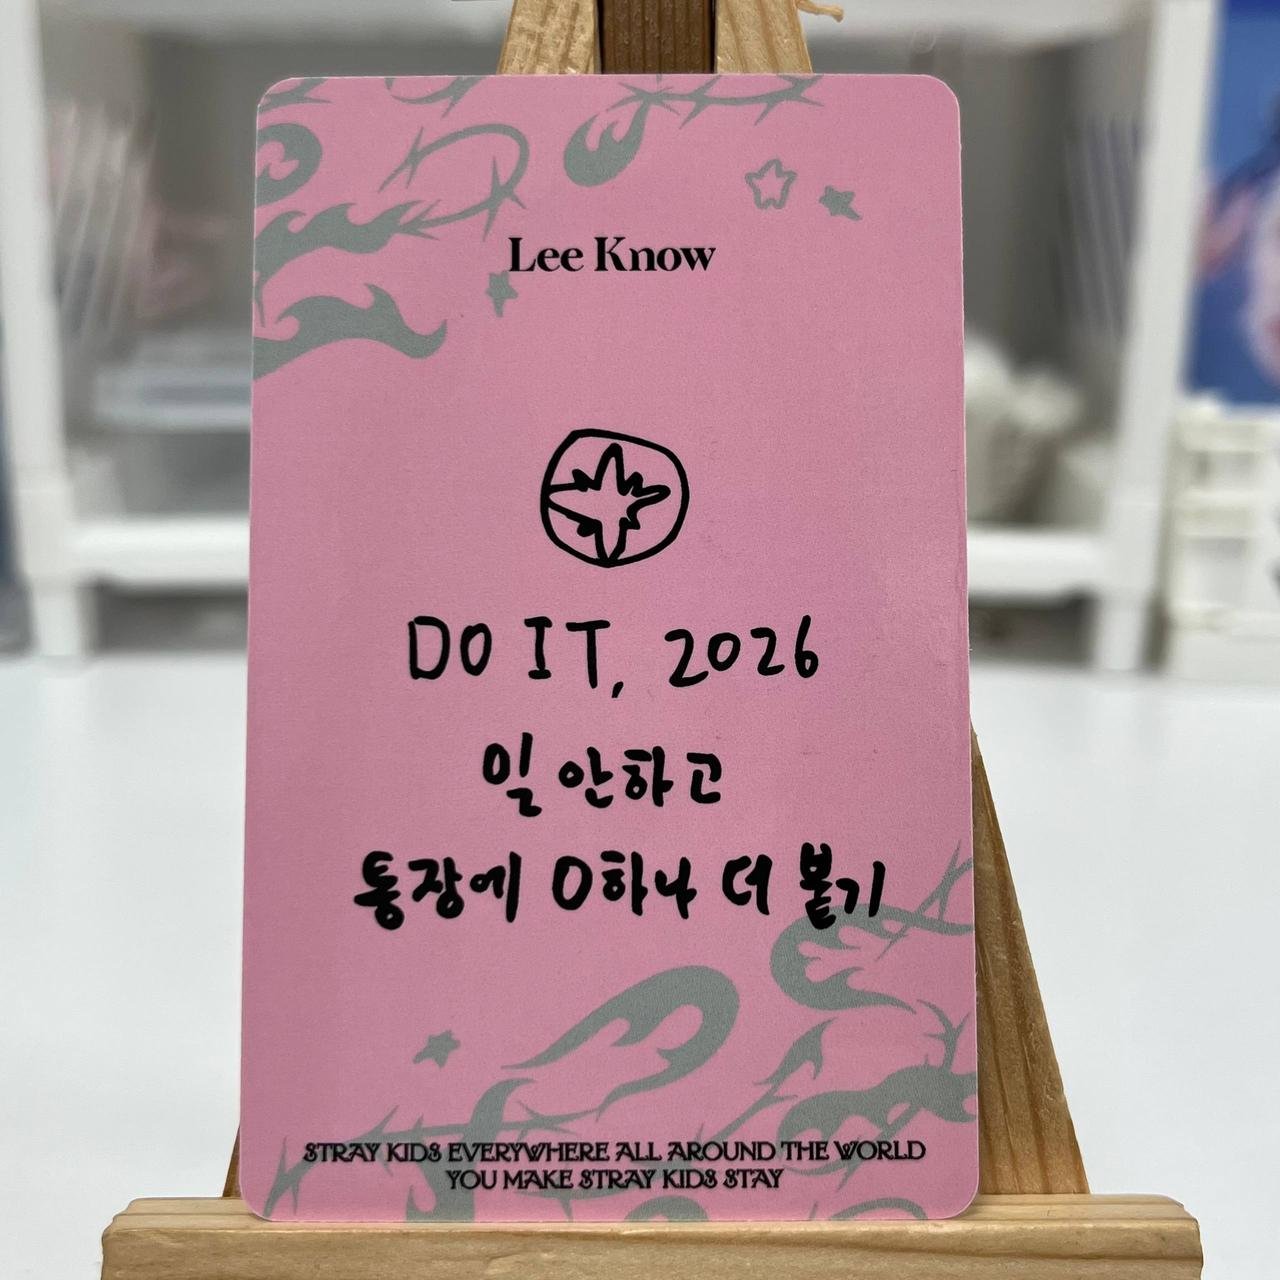 Lee Know
DO IT, 2026
일 안하고
통장에 0하나 더 붙기
STRAY KIDS EVERYWHERE ALL AROUND THE WORLD
YOU MAKE STRAY KIDS STAY